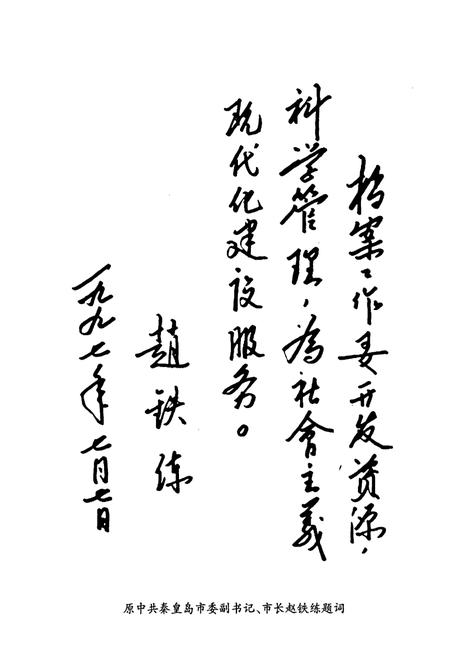 档案工作要开发资源，
科学管理，為社會主義
现代化建设服务。
趙铁练
一九九七年七月七日
原中共秦皇岛市委副书记、市长赵铁练题词